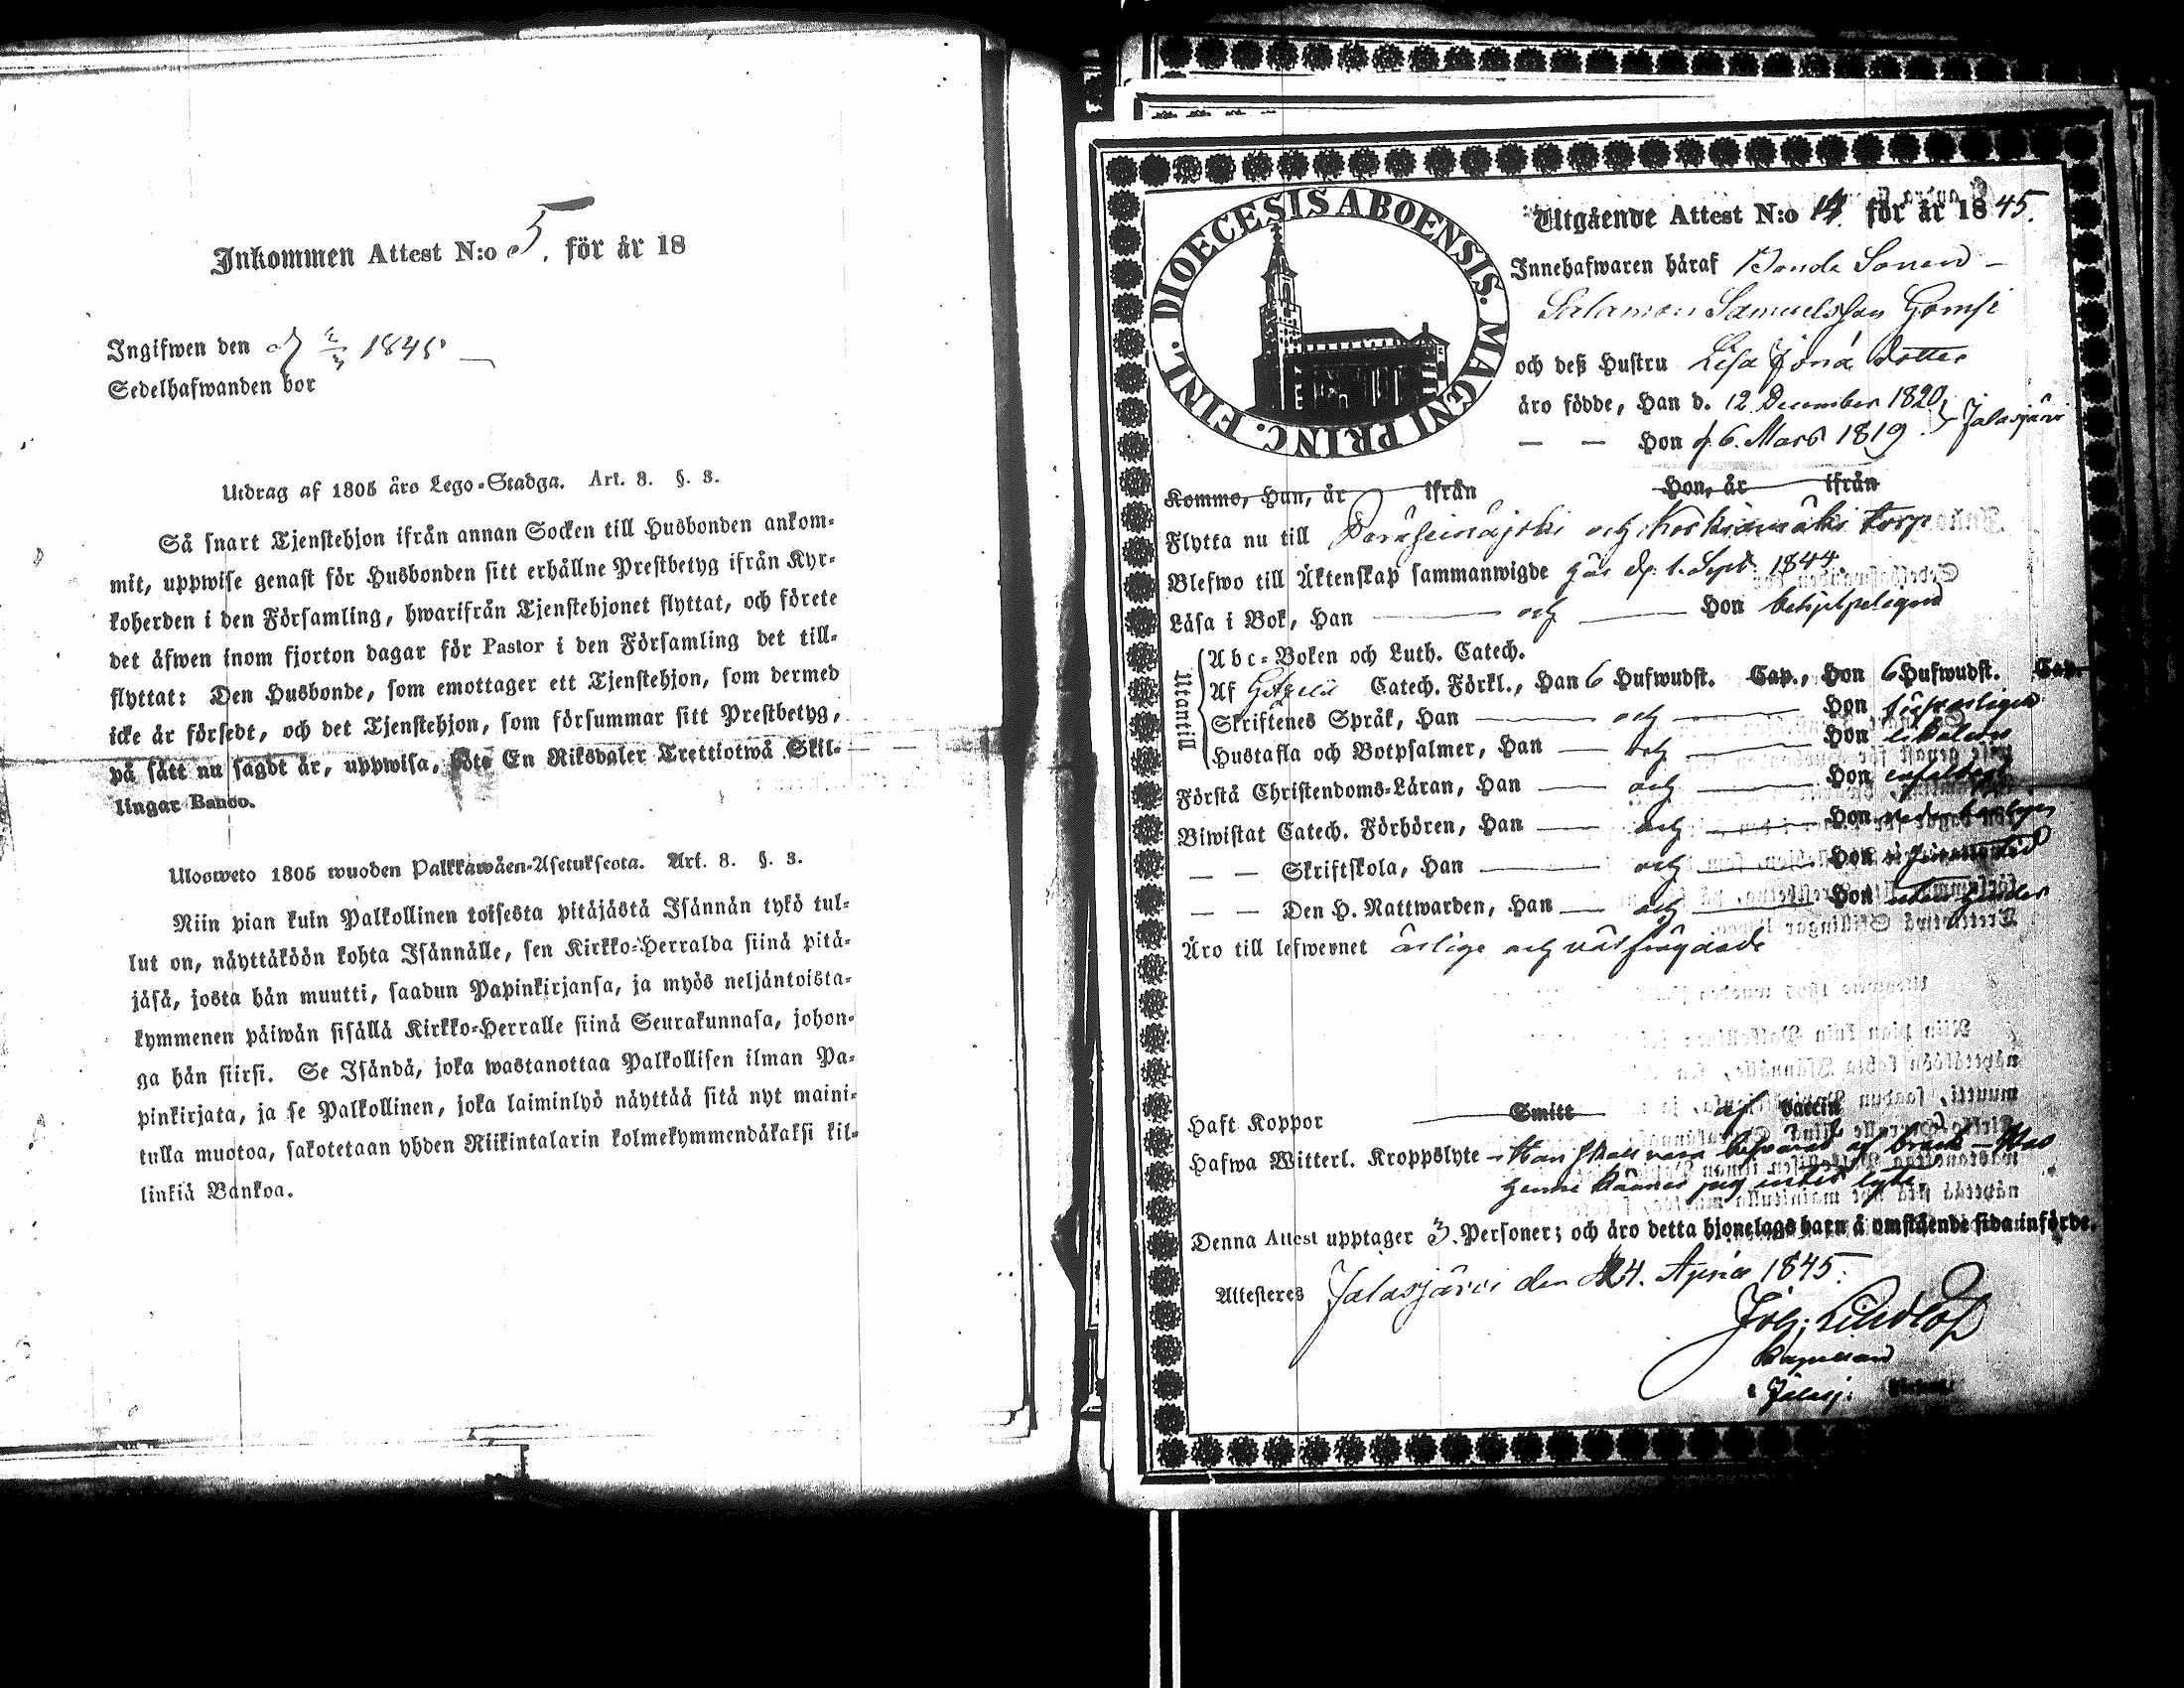 Inkommen Attest N:o 5. för år 18
Ingifwen den 1845
Sedelhafwanden bor
Utdrag af 1805 års Lego-Stadga. Art. 8. §. 3.
Så snart Tjenstehjon ifrån annan Socken till Husbonden ankom-
mit, uppwise genast för Husbonden sitt erhållne Prestbetyg ifrån Kyr-
koherden i den Församling, hwarifrån Tjenstehjonet flyttat, och förete
det äfwen inom fjorton dagar för Pastor i den Församling det till-
flyttat: Den Husbonde, som emottager ett Tjenstehjon, som dermed
icke är försedt, och det Tjenstehjon, som försummar sitt Prestbetyg,
på sätt nu sagdt är, uppwisa, böte En Riksdaler Trettiotwå Skil-
lingar Banco.
Ulosweto 1805 wuoden Palkkawäen-Asetuksesta. Art. 8. §. 3.
Niin pian kuin Palkollinen toisesta pitäjästä Isännän tykö tul-
lut on, näyttäköön kohta Isännälle, sen Kirkko-Herralda siinä pitä-
jäsä, josta hän muutti, saadun Papinkirjansa, ja myös neljäntoista-
kymmenen päiwän sisällä Kirkko-Herralle siinä Seurakunnasa, johon-
ga hän siirsi. Se Isändä, joka wastanottaa Palkollisen ilman Pa-
pinkirjata, ja se Palkollinen, joka laiminlyö näyttää sitä nyt maini-
tulla muotoa, sakotetaan yhden Riikintalarin kolmekymmendäkaksi kil-
linkiä Bankoa.
DIOECESIS ABOENSIS. MAGNI PRINC. FINL.
Utgående Attest N:o 14. för år 1845.
Innehafwaren häraf Bonde Sonen
Salamon Samuelsson Gomsi
och deß Hustru Lisa Jona dotter
äro födde, Han d. 12 December 1820
— — Hon d. 6. Mars 1819 Jalasjärvi
Komme, Han, år ifrån Hon, år ifrån
Flytta nu till Peräseinäjoki och Koskimäki torp
Blefwo till Äktenskap sammanwigde här d. 1. Sept. 1844.
Läsa i Bok, Han — och — Hon behjelpeligen
Utantill
Abc-Boken och Luth. Catech.
Af Gezelii Catech. Förkl., Han 6 Hufwudst. Cap., Hon 6 Hufwudst. Cap.
Skriftenes Språk, Han — och — Hon
Hustafla och Botpsalmer, Han — och — Hon likaledes
Förstå Christendoms-Läran, Han — och — Hon enfaldigt
Biwistat Catech. Förhören, Han — och — Hon
— — Skriftskola, Han — och — Hon
— — Den H. Nattwarden, Han — och — Hon utan hinder
Äro till lefwernet ärlige och välfrägdade
Haft Koppor Smitt af vaccin
Hafwa Witterl. Kroppslyte Han skall vara besvärad af bråck — Hos
henne känner jag intet lyte.
Denna Attest upptager 3. Personer; och äro detta hjonelags barn å omstående sida införde.
Attesteres Jalasjärvi den 24. April 1845.
Joh: Lindlöf
Kapellan
i Jalasj: